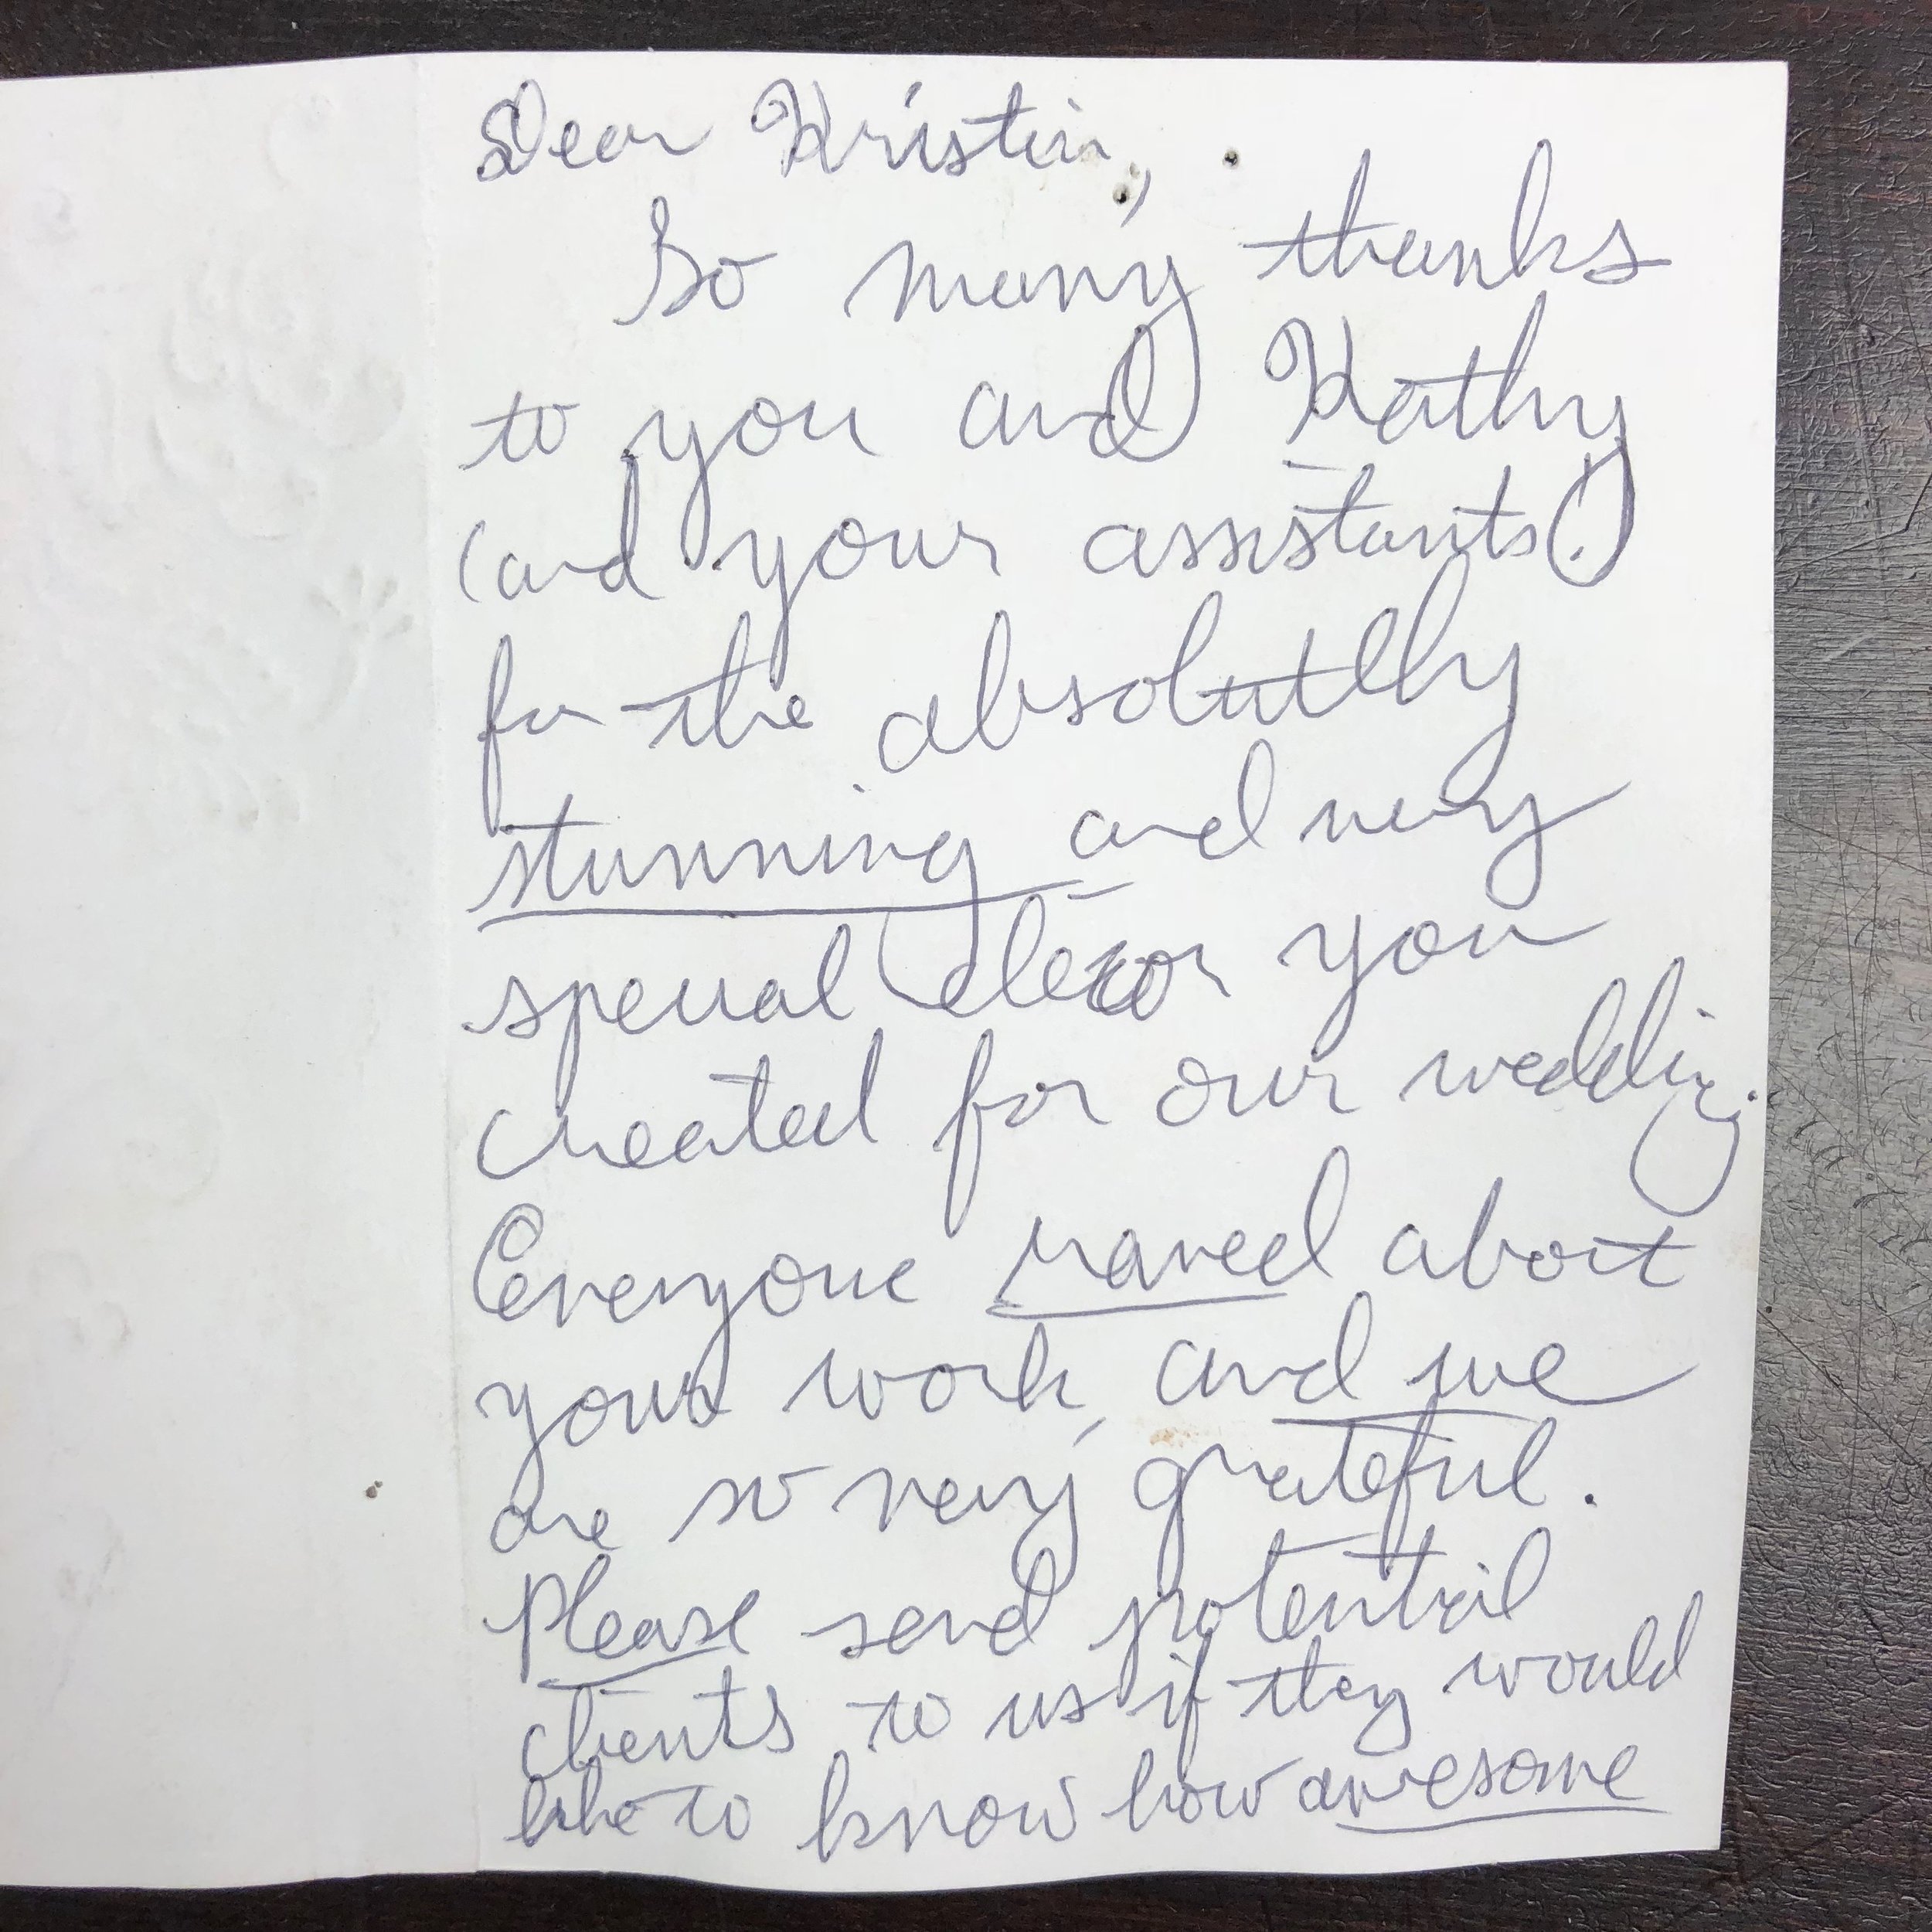 Dear Kristin,
So many thanks
to you and Kathy
(and your assistants!)
for the absolutely
stunning and very
special decor you
created for our wedding.
Everyone raved about
your work, and we
are so very grateful.
Please send potential
clients to us if they would
like to know how awesome